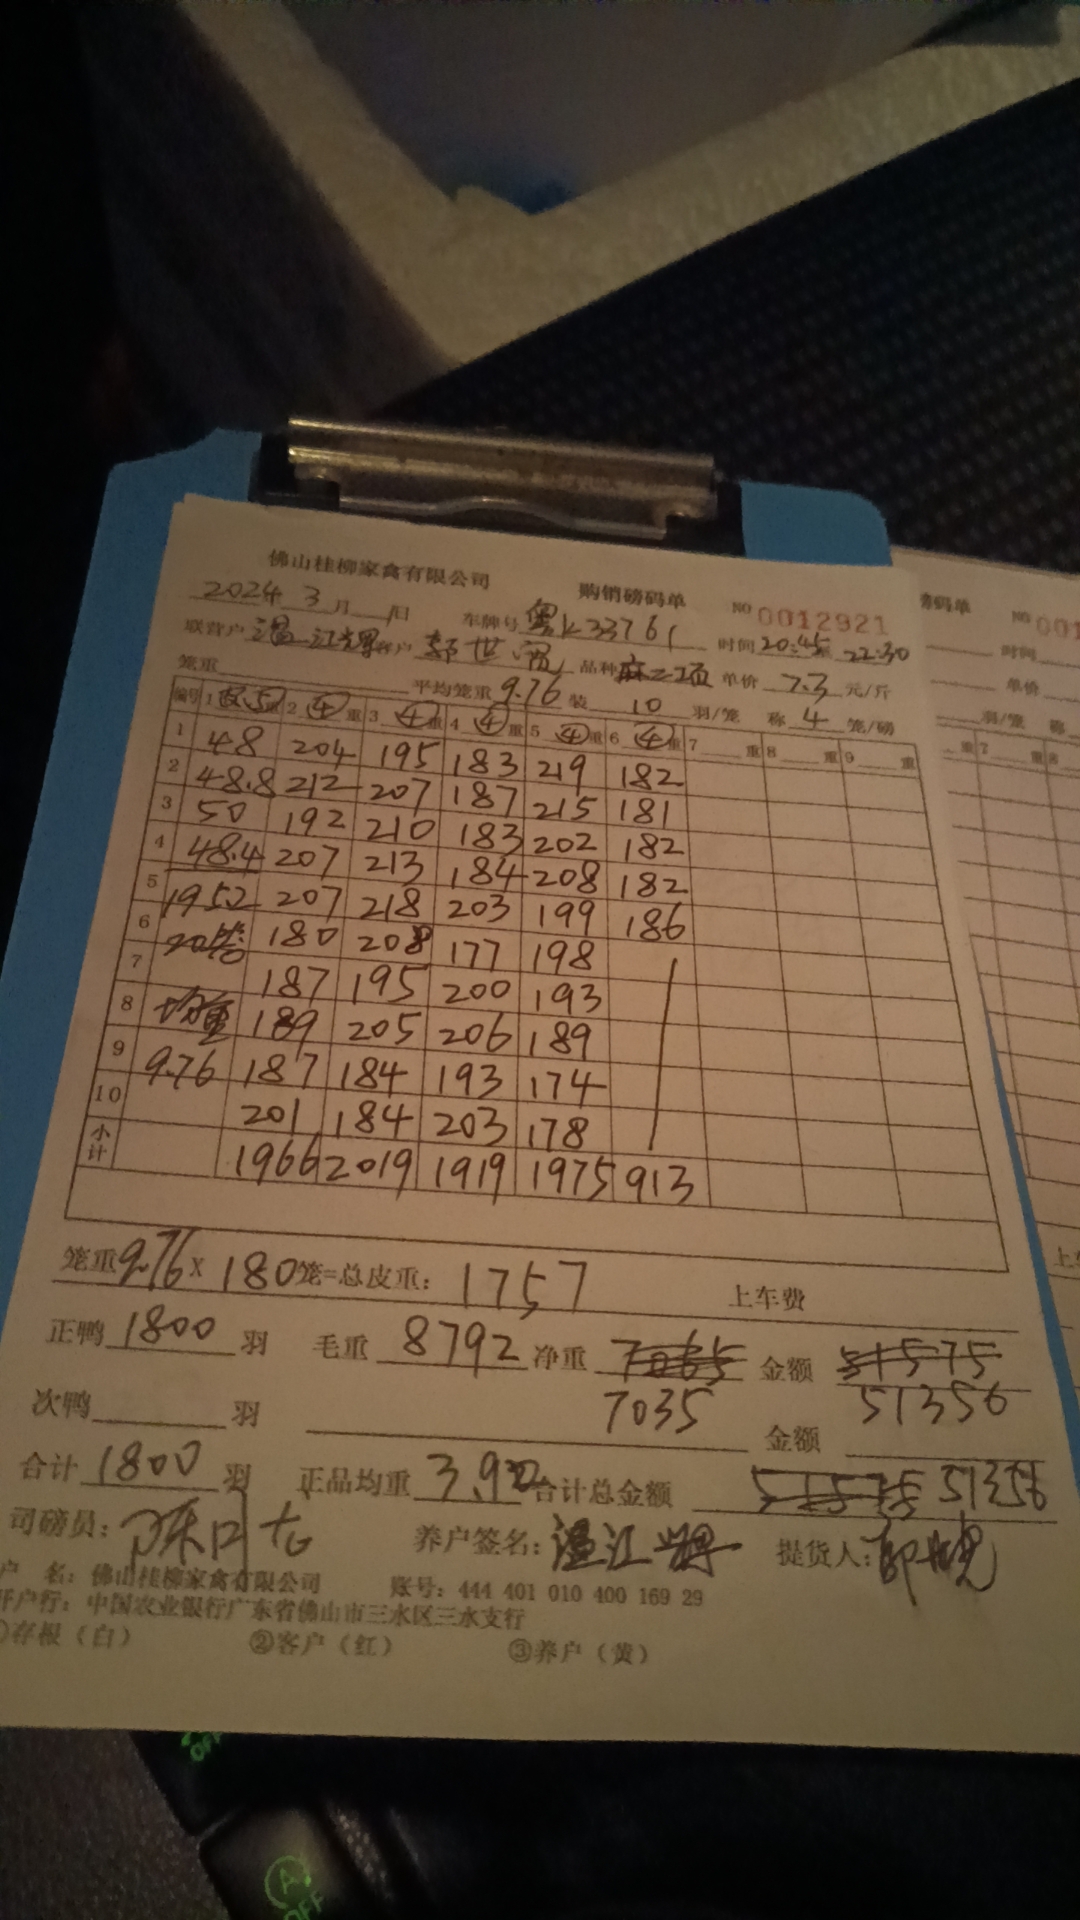 佛山桂柳家禽有限公司 购销磅码单 NO 0012921
2024 3月 日 车牌号 粤K33761 时间 20:45 至 22:30
联营户 温江辉 客户 品种 麻二项 单价 7.3 元/斤
笼重 平均笼重 9.76 装 10 羽/笼 称 4 笼/磅
编号 1 重 2 ④ 重 3 ④ 重 4 ④ 重 5 ④ 重 6 ④ 重 7 重 8 重 9 重
1 48 204 195 183 219 182
2 48.8 212 207 187 215 181
3 50 192 210 183 202 182
4 48.4 207 213 184 208 182
5 195.2 207 218 203 199 186
6 20笼 180 208 177 198
7 187 195 200 193
8 均重 189 205 206 189
9 9.76 187 184 193 174
10 201 184 203 178
小计 1966 2019 1919 1975 913
笼重 9.76 X 180 笼=总皮重: 1757 上车费
正鸭 1800 羽 毛重 8792 净重 7065 金额 51575
7035 51356
次鸭 羽 金额
合计 1800 羽 正品均重 3.9 合计总金额 51575 51356
司磅员: 养户签名: 温江辉 提货人:
户 名: 佛山桂柳家禽有限公司 账号: 444 401 010 400 169 29
开户行: 中国农业银行广东省佛山市三水区三水支行
①存根（白） ②客户（红） ③养户（黄）
磅码单 NO 001
时间
单价
羽/笼 称
重 7 重 8
OFF
A
OFF